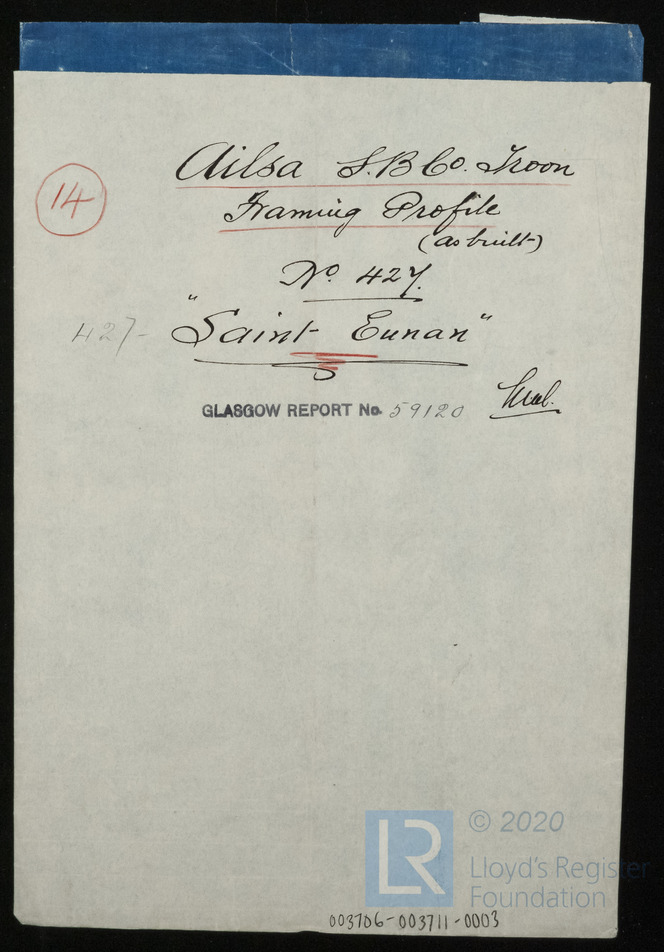 14
Ailsa S.B Co. Troon
Framing Profile
(as built)
No. 427.
427-
"Saint Eunan"
GLASGOW REPORT No. 59120
LR
© 2020
Lloyd's Register
Foundation
003706-003711-0003